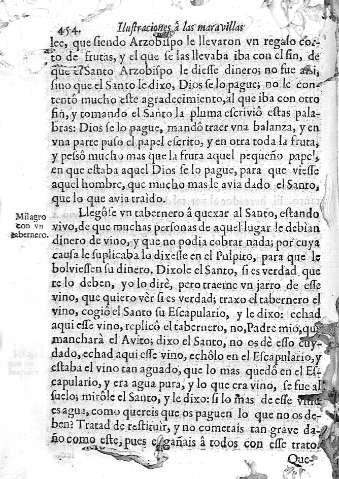 454. Ilustraciones à las maravillas
lee, que siendo Arzobispo le llevaron vn regalo cor-
to de frutas, y el que se las llevaba iba con el fin, de
que el Santo Arzobispo le diesse dinero; no fue assi,
sino que el Santo le dixo, Dios se lo pague; no le con-
tentò mucho este agradecimiento, al que iba con otro
fin, y tomando el Santo la pluma escriviò estas pala-
bras: Dios se lo pague, mandò traer vna balanza, y en
vna parte puso el papel escrito, y en otra toda la fruta,
y pesò mucho mas que la fruta aquel pequeño papel,
en que estaba aquel Dios se lo pague, para que viesse
aquel hombre, que mucho mas le avia dado el Santo,
que lo que avia traido.
Milagro
con vn
tabernero.
Llegòse vn tabernero à quexar al Santo, estando
vivo, de que muchas personas de aquel lugar le debian
dinero de vino, y que no podia cobrar nada; por cuya
causa le suplicaba lo dixesse en el Pulpito, para que le
bolviessen su dinero. Dixole el Santo, si es verdad que
te lo deben, yo lo dirè, pero traeme vn jarro de esse
vino, que quiero vèr si es verdad; traxo el tabernero el
vino, cogiò el Santo su Escapulario, y le dixo: echad
aqui esse vino, replicò el tabernero, no, Padre mio, que
mancharà el Avito; dixo el Santo, no os dè esso cuy-
dado, echad aqui esse vino, echòlo en el Escapulario, y
estaba el vino tan aguado, que lo mas quedò en el Es-
capulario, y era agua pura, y lo que era vino, se fue al
suelo; miròle el Santo, y le dixo: si lo mas de esse vino
es agua, como quereis que os paguen lo que no os de-
ben? Tratad de restituir, y no cometais tan grave da-
ño como este, pues engañais à todos con esse trato.
Que